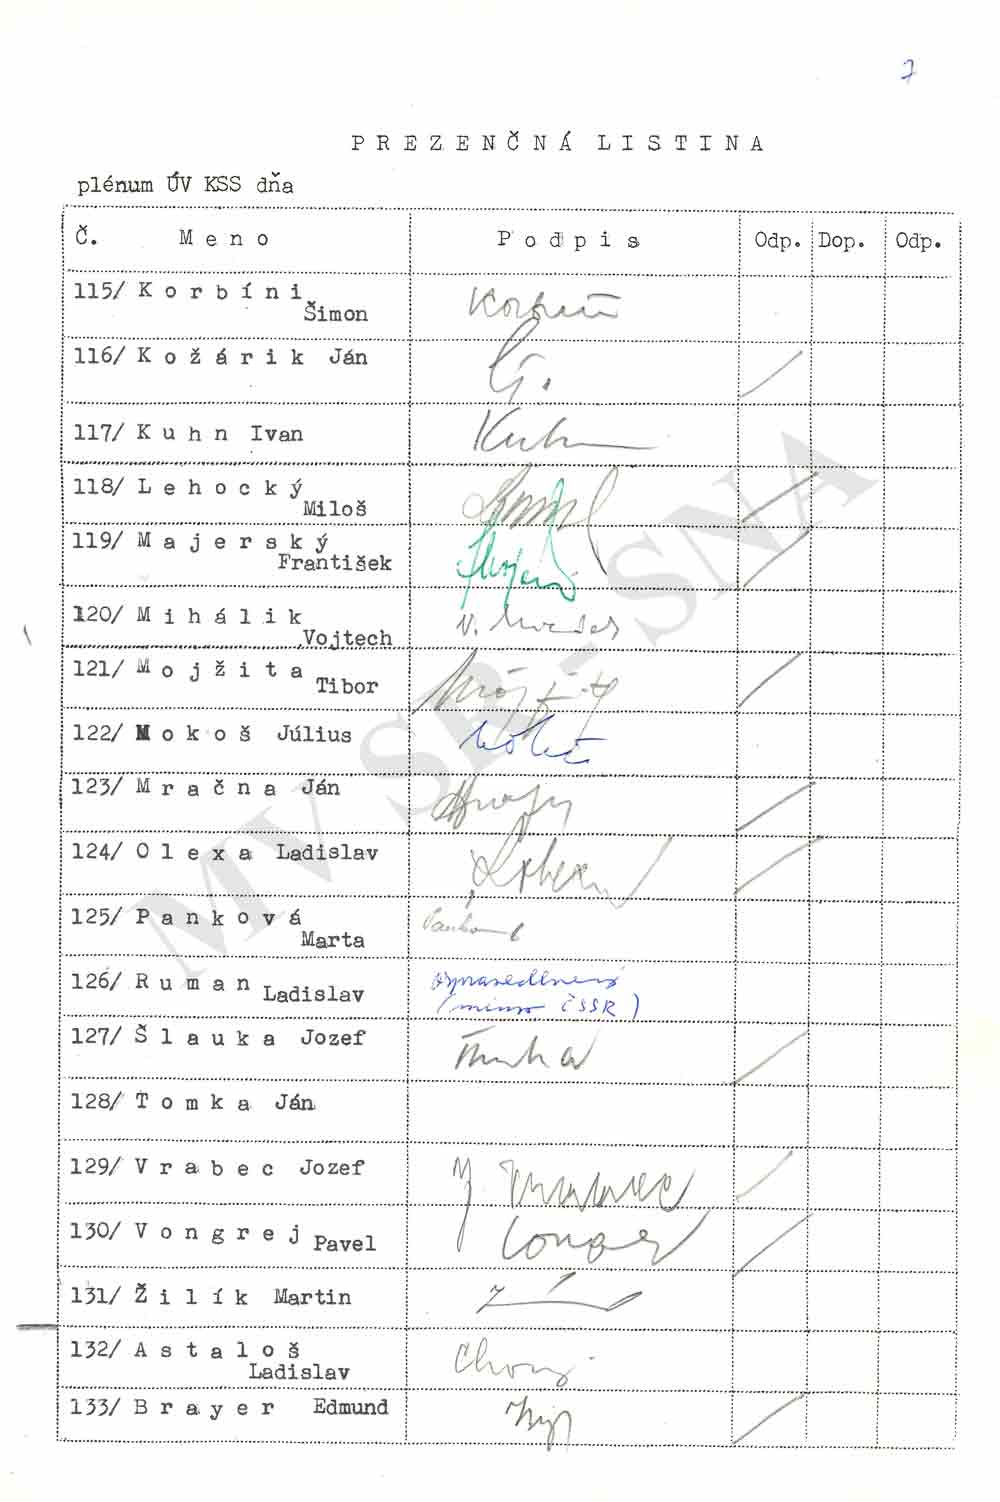 7
PREZENČNÁ LISTINA
plénum ÚV KSS dňa
Č. Meno Podpis Odp. Dop. Odp.
115/ Korbíni
Šimon
116/ Kožárik Ján
117/ Kuhn Ivan Kuhn
118/ Lehocký
Miloš
119/ Majerský
František
120/ Mihálik
Vojtech
121/ Mojžita
Tibor
122/ Mokoš Július
123/ Mračna Ján
124/ Olexa Ladislav
125/ Panková
Marta
126/ Ruman
Ladislav
(mimo ČSSR)
127/ Šlauka Jozef
128/ Tomka Ján
129/ Vrabec Jozef J. Vrabec
130/ Vongrej
Pavel
131/ Žilík Martin
132/ Astaloš
Ladislav
133/ Brayer Edmund
MV SR - SNA